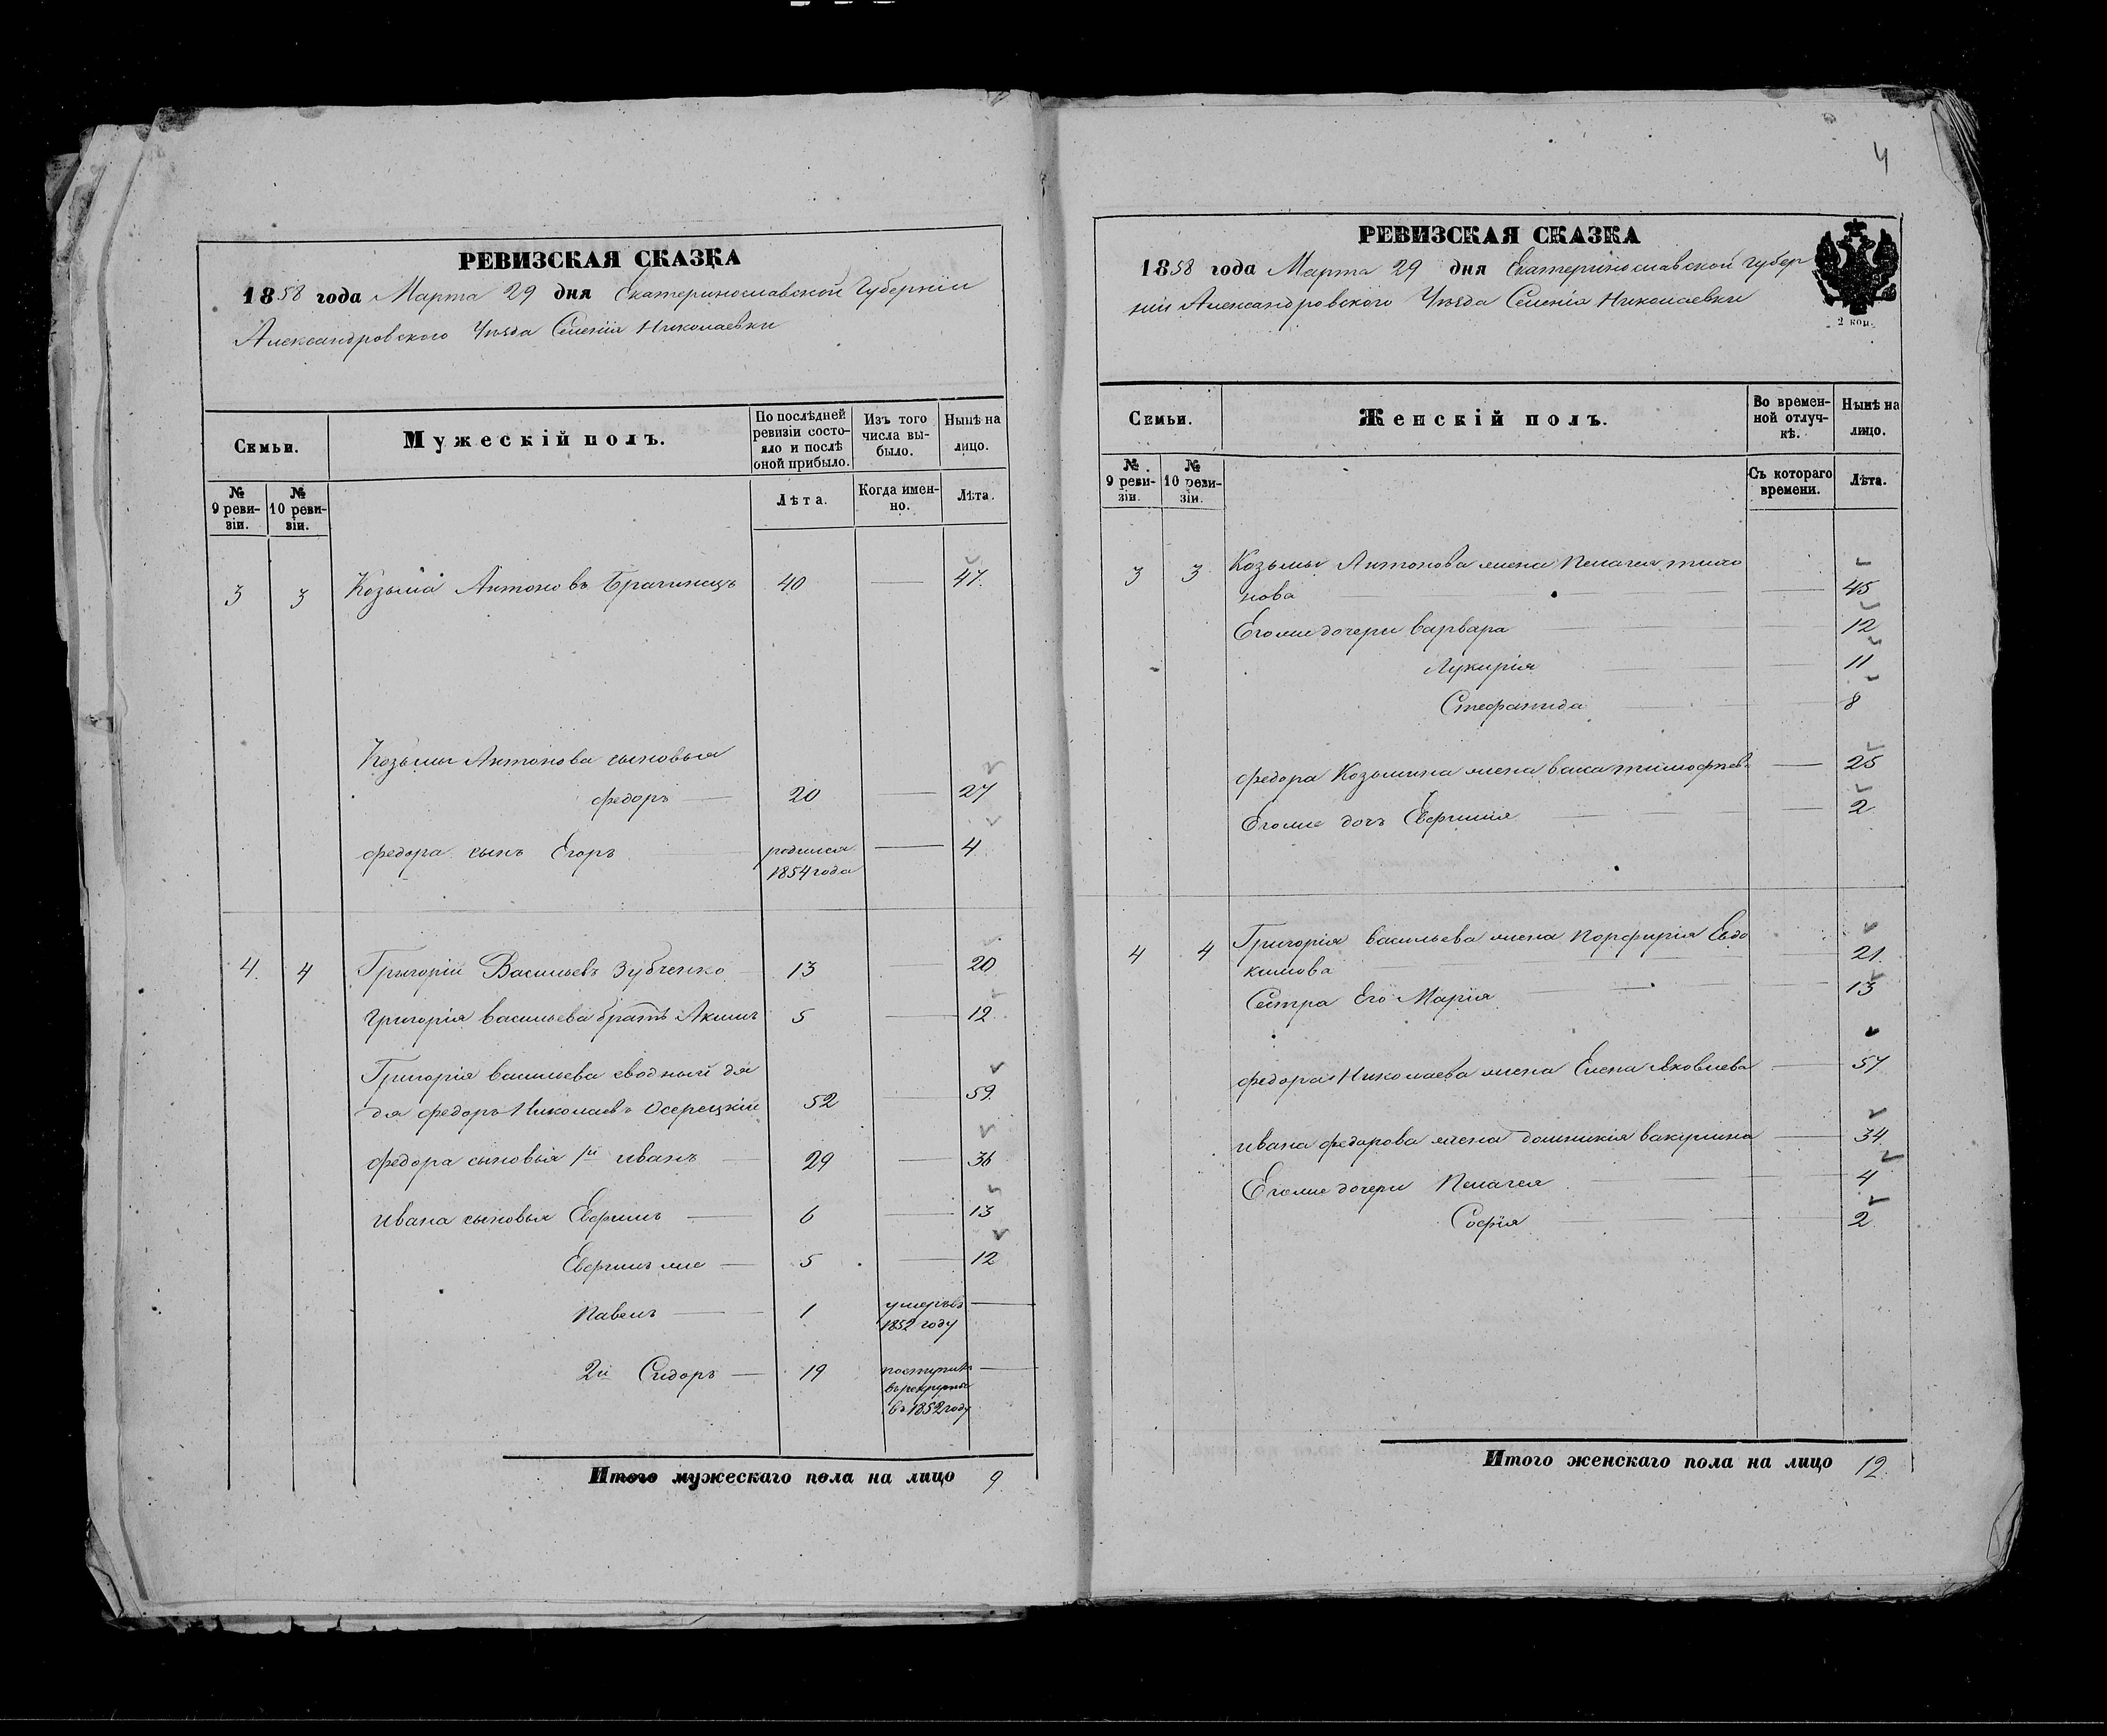 РЕВИЗСКАЯ СКАЗКА
1858 года Марта 29 дня Екатеринославской Губерніи
Александровского Уѣзда Селенія Николаевки
Семьи.
Мужескій полъ.
По послѣдней ревизіи состояло и послѣ оной прибыло.
Изъ того числа выбыло.
Нынѣ на лицо.
№ 9 ревизіи.
№ 10 ревизіи.
Лѣта.
Когда именно.
Лѣта.
3 3 Козьма Антоновъ 40 — 47.
Козьмы Антонова сыновья
Федоръ — 20 — 27
Федора сынъ Егоръ родился — 4
1854 года
4. 4 Григорій Васильевъ Зубченко 13 — 20
Григорія Васильева братъ Акимъ 5 — 12
Григорія Васильева сводный дя
дя Федоръ Николаевъ Осерецкій 52 — 59
Федора сыновья 1й Иванъ — 29 — 36
Ивана сыновья Ефримъ — 6 — 13
Ефримъ же — 5 — 12
Павелъ — 1 умеръ въ —
1852 году
2й Сидоръ — 19 поступилъ —
въ рекруты
въ 1852 году
Итого мужескаго пола на лицо 9
4
РЕВИЗСКАЯ СКАЗКА
1858 года Марта 29 дня Екатеринославской Губер
ніи Александровского Уѣзда Селенія Николаевки
2 коп.
Семьи.
Женскій полъ.
Во временной отлучкѣ.
Нынѣ на лицо.
№ 9 ревизіи.
№ 10 ревизіи.
Съ котораго времени.
Лѣта.
3 3 Козьмы Антонова жена Пелагея Тихо
нова — 45
Его же дочери Варвара — 12
Лукирія — 11
Стефанида — 8
Федора Козьмина жена Васа Тимофеев — 25
Его же дочь — 2
4 4 Григорія Васильева жена Порфирія Евдо
кимова — 21
Сестра Его Марія — 13
Федора Николаева жена Елена Яковлева — 57
Ивана Федорова жена Домникія — 34
Его же дочери Пелагея — 4
Софія — 2
Итого женскаго пола на лицо 12.